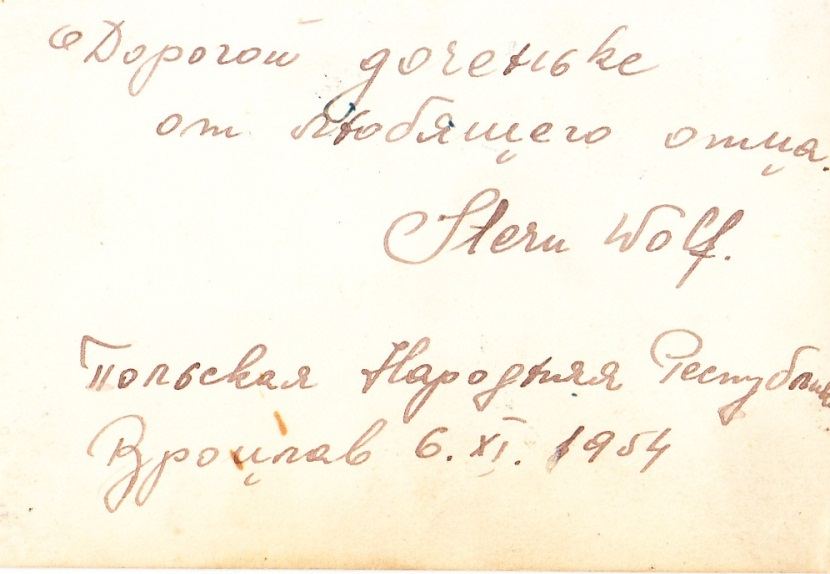 Дорогой доченьке
от любящего отца.
Stern Wolf.
Польская Народная Республика
Вроцлав 6.XI.1954